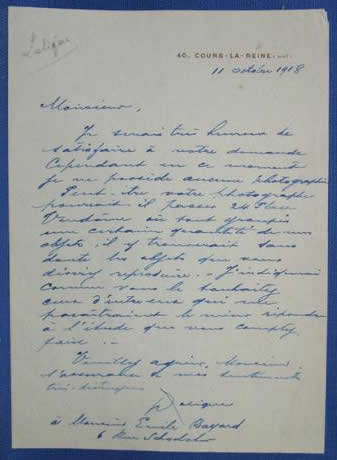 Lalique
40, COURS-LA-REINE
11 octobre 1918
Monsieur,
Je serais très heureux de
satisfaire à votre demande
Cependant en ce moment
je ne possède aucune photographie
Peut-être votre photographe
pourrait il passer 24 Place
Vendôme où sont groupés
une certaine quantité de mes
objets, il y trouverait sans
doute les objets que vous
désirez reproduire. - J'indiquerai
comme vous le souhaitez
ceux d'entre eux qui me
paraîtraient le mieux répondre
à l'étude que vous comptez
faire. -
Veuillez agréer, Monsieur,
l'assurance de mes sentiments
très distingués
Lalique
à Monsieur Emile Bayard
6 Rue